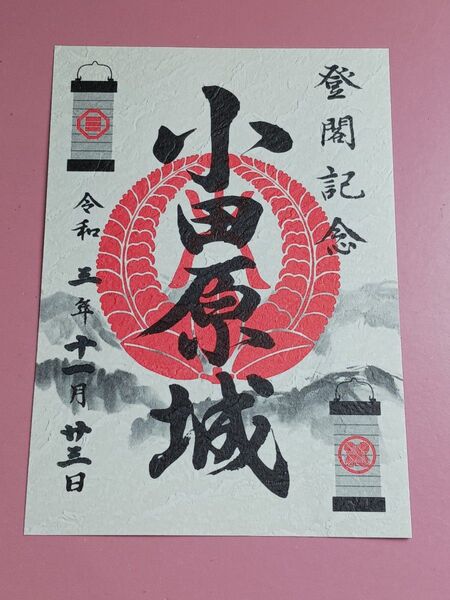 登閣記念
小田原城
令和三年十一月廿三日